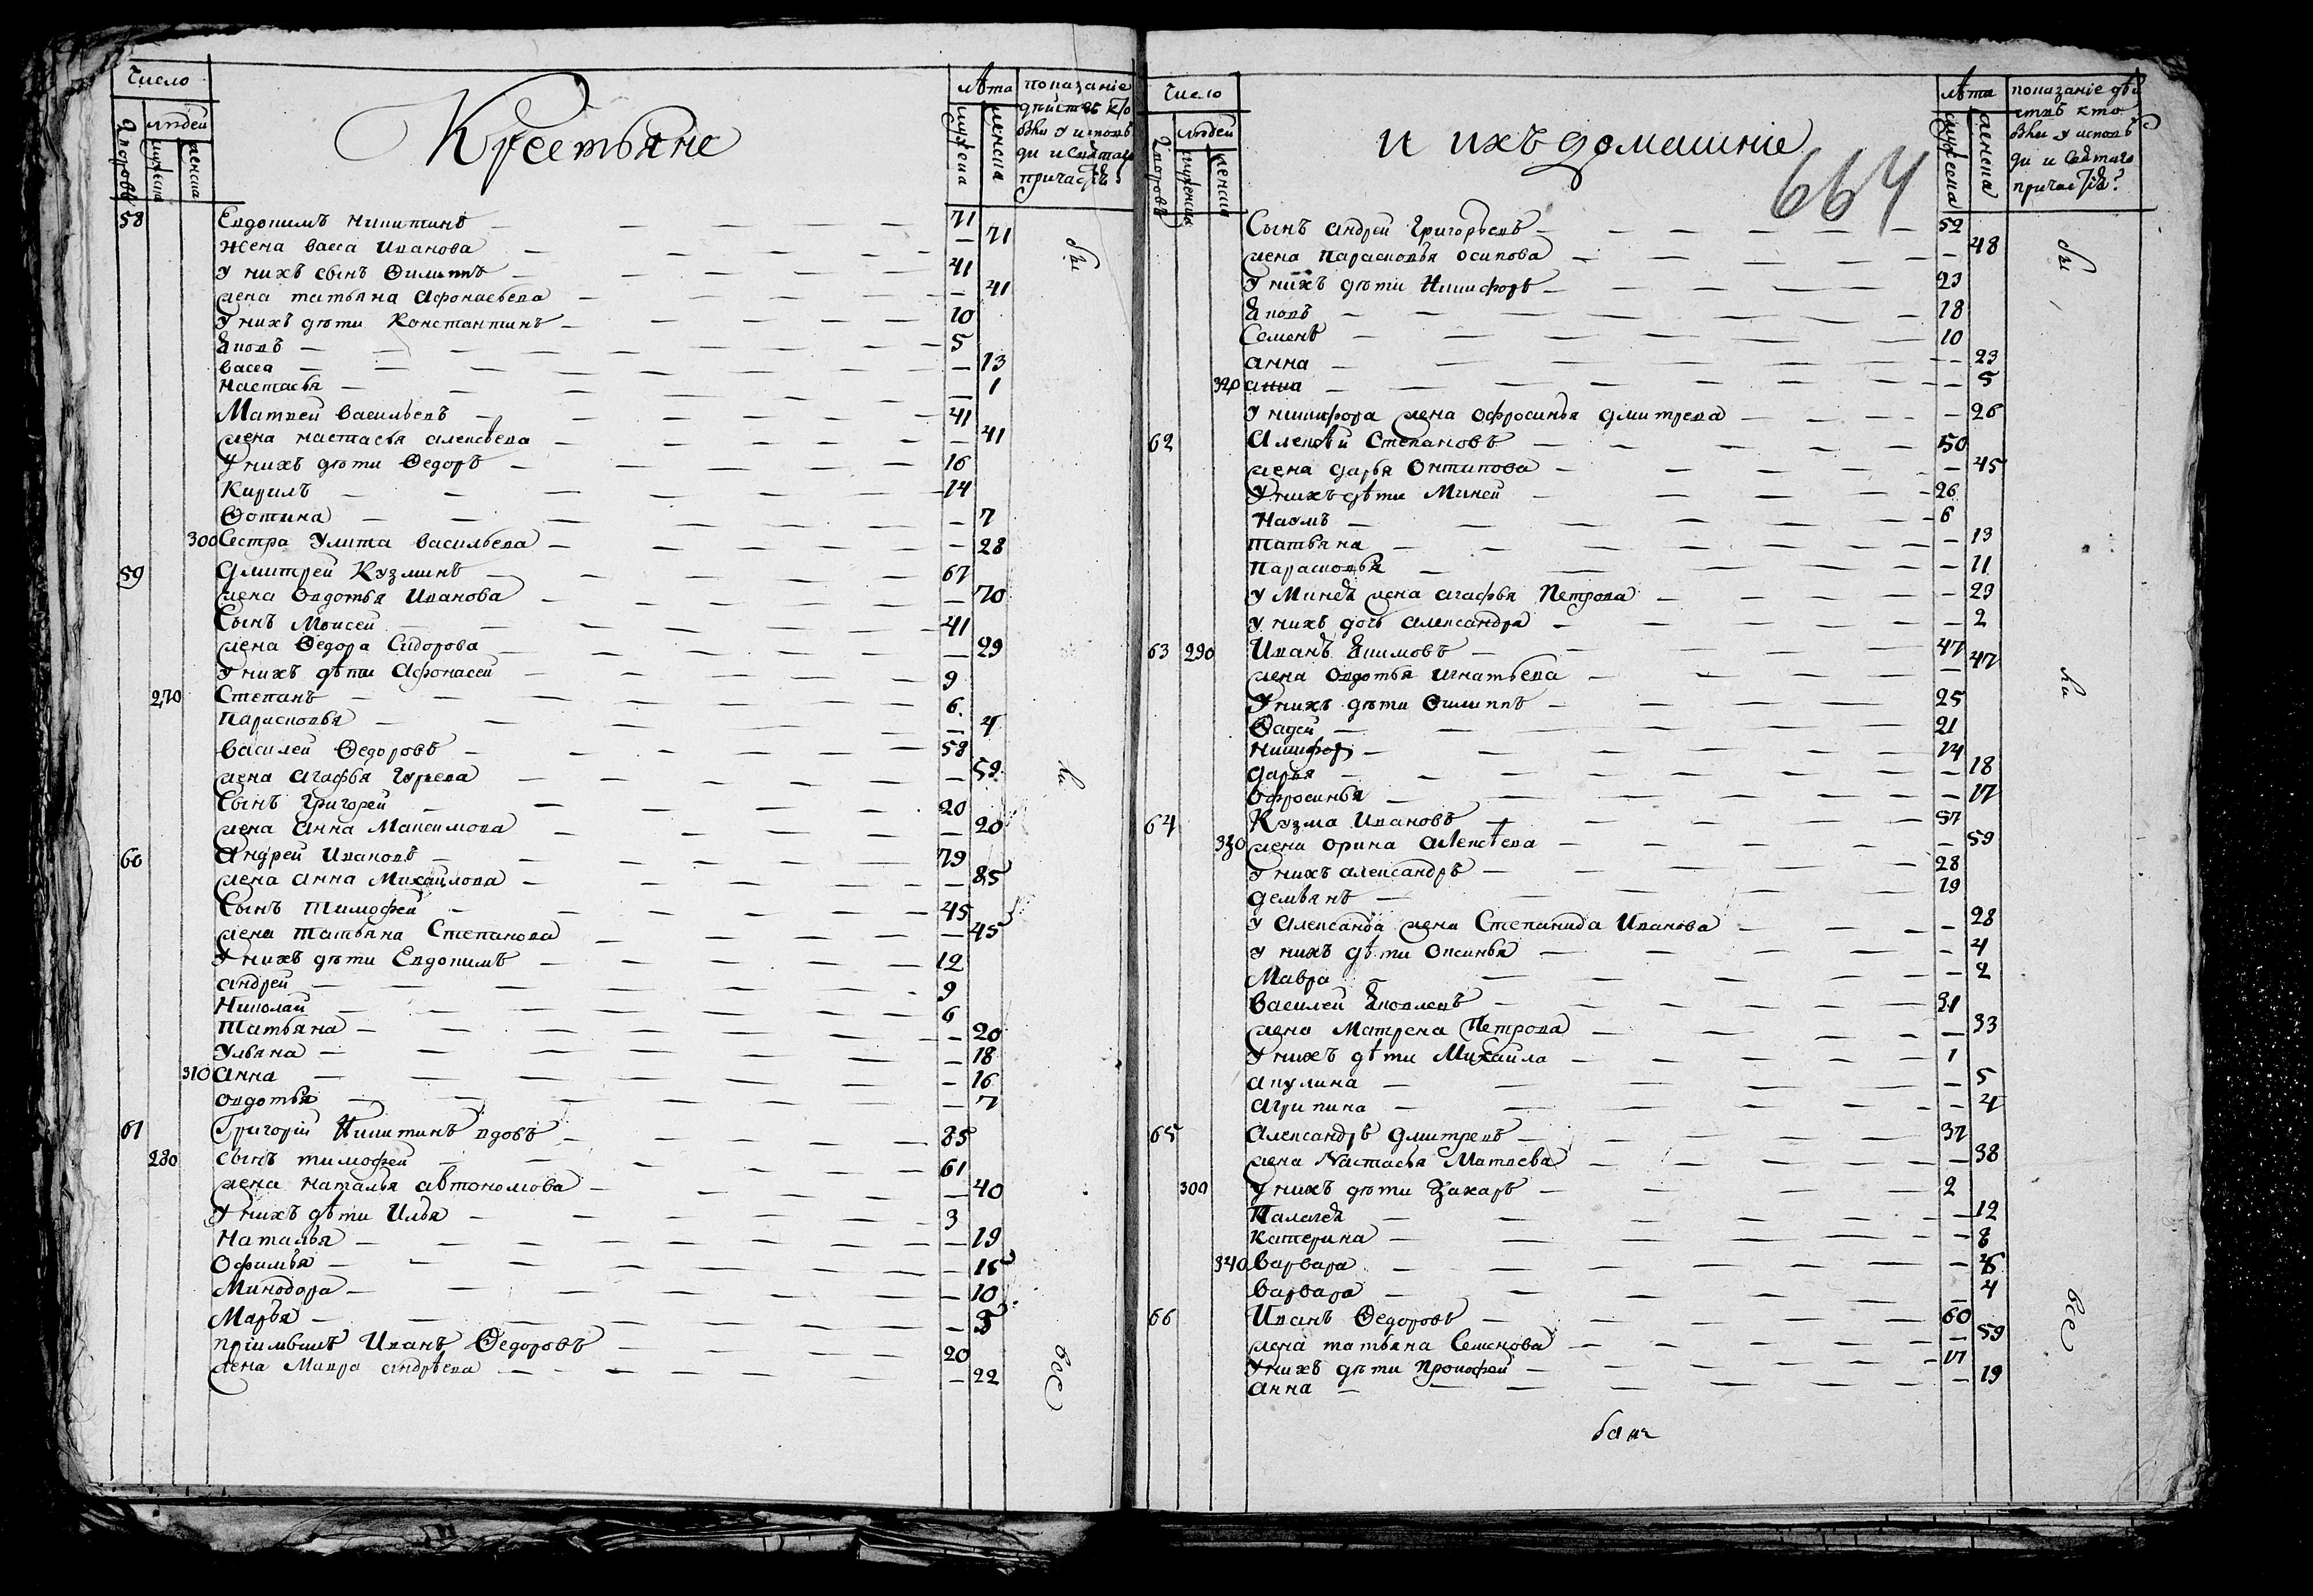 Число
людей
дворовъ
мужеска
женска
Крестьяне
лѣта
мужеска
женска
показаніе
дѣйствъ кто
былъ у исповѣ
ди и святаго
причастія?
58 Евдокимъ Никитинъ 71
Жена Васса Иванова 71
У нихъ сынъ Филиппъ 41
жена Татьяна Афонасьева 41
У нихъ дѣти Константинъ 10
Яковъ 5
Васса 13
Настасья 1
Матвей Васильевъ 41
жена Настасья Алексѣева 41
У нихъ дѣти Федоръ 16
Кирилъ 14
Фотина 7
300 Сестра Улита Васильева 28
59 Дмитрей Кузминъ 67
жена Овдотья Иванова 70
Сынъ Моисей 41
жена Федора Сидорова 29
У нихъ дѣти Афонасей 9
270 Степанъ 6
Парасковья 4
Василей Федоровъ 58
жена Агафья Гурьева 59
Сынъ Григорей 20
жена Анна Максимова 20
60 Андрей Ивановъ 79
жена Анна Михайлова 85
Сынъ Тимофей 45
жена Татьяна Степанова 45
У нихъ дѣти Евдокимъ 12
Андрей 9
Николай 6
Татьяна 20
Ульяна 18
310 Анна 16
Овдотья 7
61 Григорій Никитинъ вдовъ 85
280 сынъ Тимофей 61
жена Наталья Автономова 40
У нихъ дѣти Илья 3
Наталья 19
Офимья 15
Минодора 10
Марья 5
пріимышъ Иванъ Федоровъ 20
жена Мавра Андрѣева 22
бы
ли
всѣ
Число
людей
дворовъ
мужеска
женска
и ихъ домашніе
664
лѣта
мужеска
женска
показаніе дѣй
ствъ кто
былъ у исповѣ
ди и святаго
причастія?
Сынъ Андрей Григорьевъ 52
жена Парасковья Осипова 48
У нихъ дѣти Никифоръ 23
Яковъ 18
Семенъ 10
Анна 23
320 Анна 5
У Никифора жена Офросинья Дмитрева 26
62 Алексѣй Степановъ 50
жена Дарья Онтипова 45
У нихъ дѣти Миней 26
Наумъ 6
Татьяна 13
Парасковья 11
У Минея жена Агафья Петрова 23
У нихъ дочь Александра 2
63 290 Иванъ Якимовъ 47
жена Овдотья Игнатьева 47
У нихъ дѣти Филиппъ 25
Фадей 21
Никифоръ 14
Дарья 18
Офросинья 17
64 Кузма Ивановъ 57
330 жена Орина Алексѣева 59
У нихъ Александръ 28
Демьянъ 19
У Александа жена Степанида Иванова 28
У нихъ дѣти Оксинья 4
Мавра 2
Василей Яковлевъ 31
жена Матрена Петрова 33
У нихъ дѣти Михаила 1
Акулина 5
Агрипина 4
65 Александръ Дмитревъ 37
жена Настасья Матвѣева 38
300 У нихъ дѣти Захаръ 2
Палагея 12
Катерина 8
340 Варвара
Варвара 4
66 Иванъ Федоровъ 60
жена Татьяна Семенова 59
У нихъ дѣти Прокофей 17
Анна 19
бы
ли
всѣ